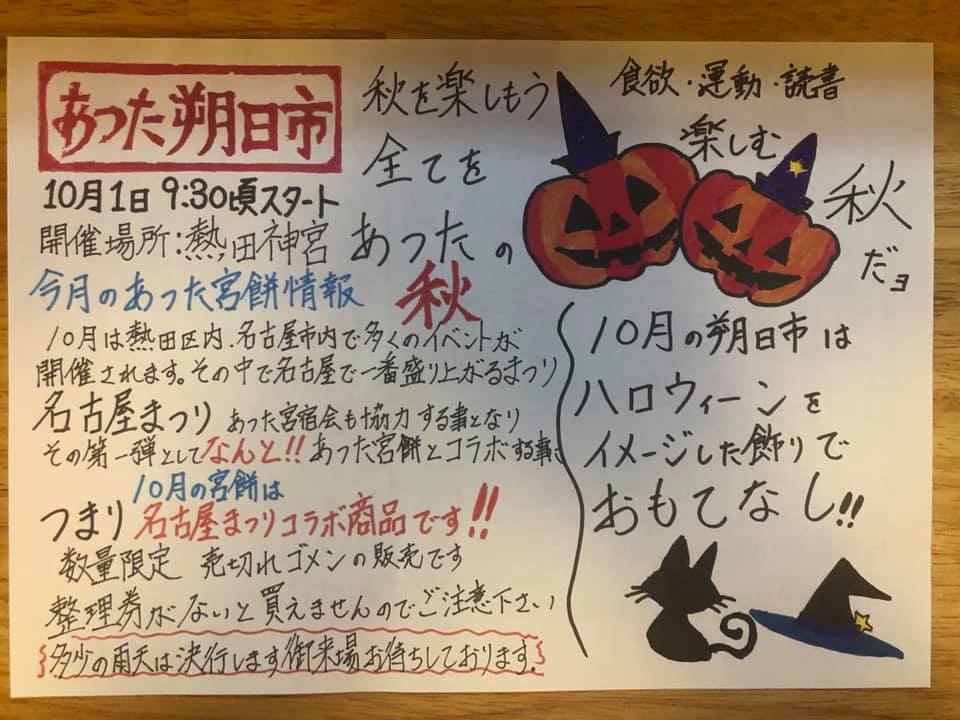 あった朔日市
10月1日 9:30頃スタート
開催場所:熱田神宮
秋を楽しもう
全てを
あったの
秋
食欲・運動・読書
楽しむ
秋
だョ
今月のあった宮餅情報
10月は熱田区内、名古屋市内で多くのイベントが
開催されます。その中で名古屋で一番盛り上がるまつり
名古屋まつり あった宮宿会も協力する事となり
その第一弾としてなんと!! あった宮餅とコラボする事に
10月の宮餅は
つまり 名古屋まつりコラボ商品です!!
数量限定 売切れゴメンの販売です
整理券がないと買えませんのでご注意下さい
多少の雨天は決行します御来場お待ちしております。
10月の朔日市は
ハロウィーンを
イメージした飾りで
おもてなし!!